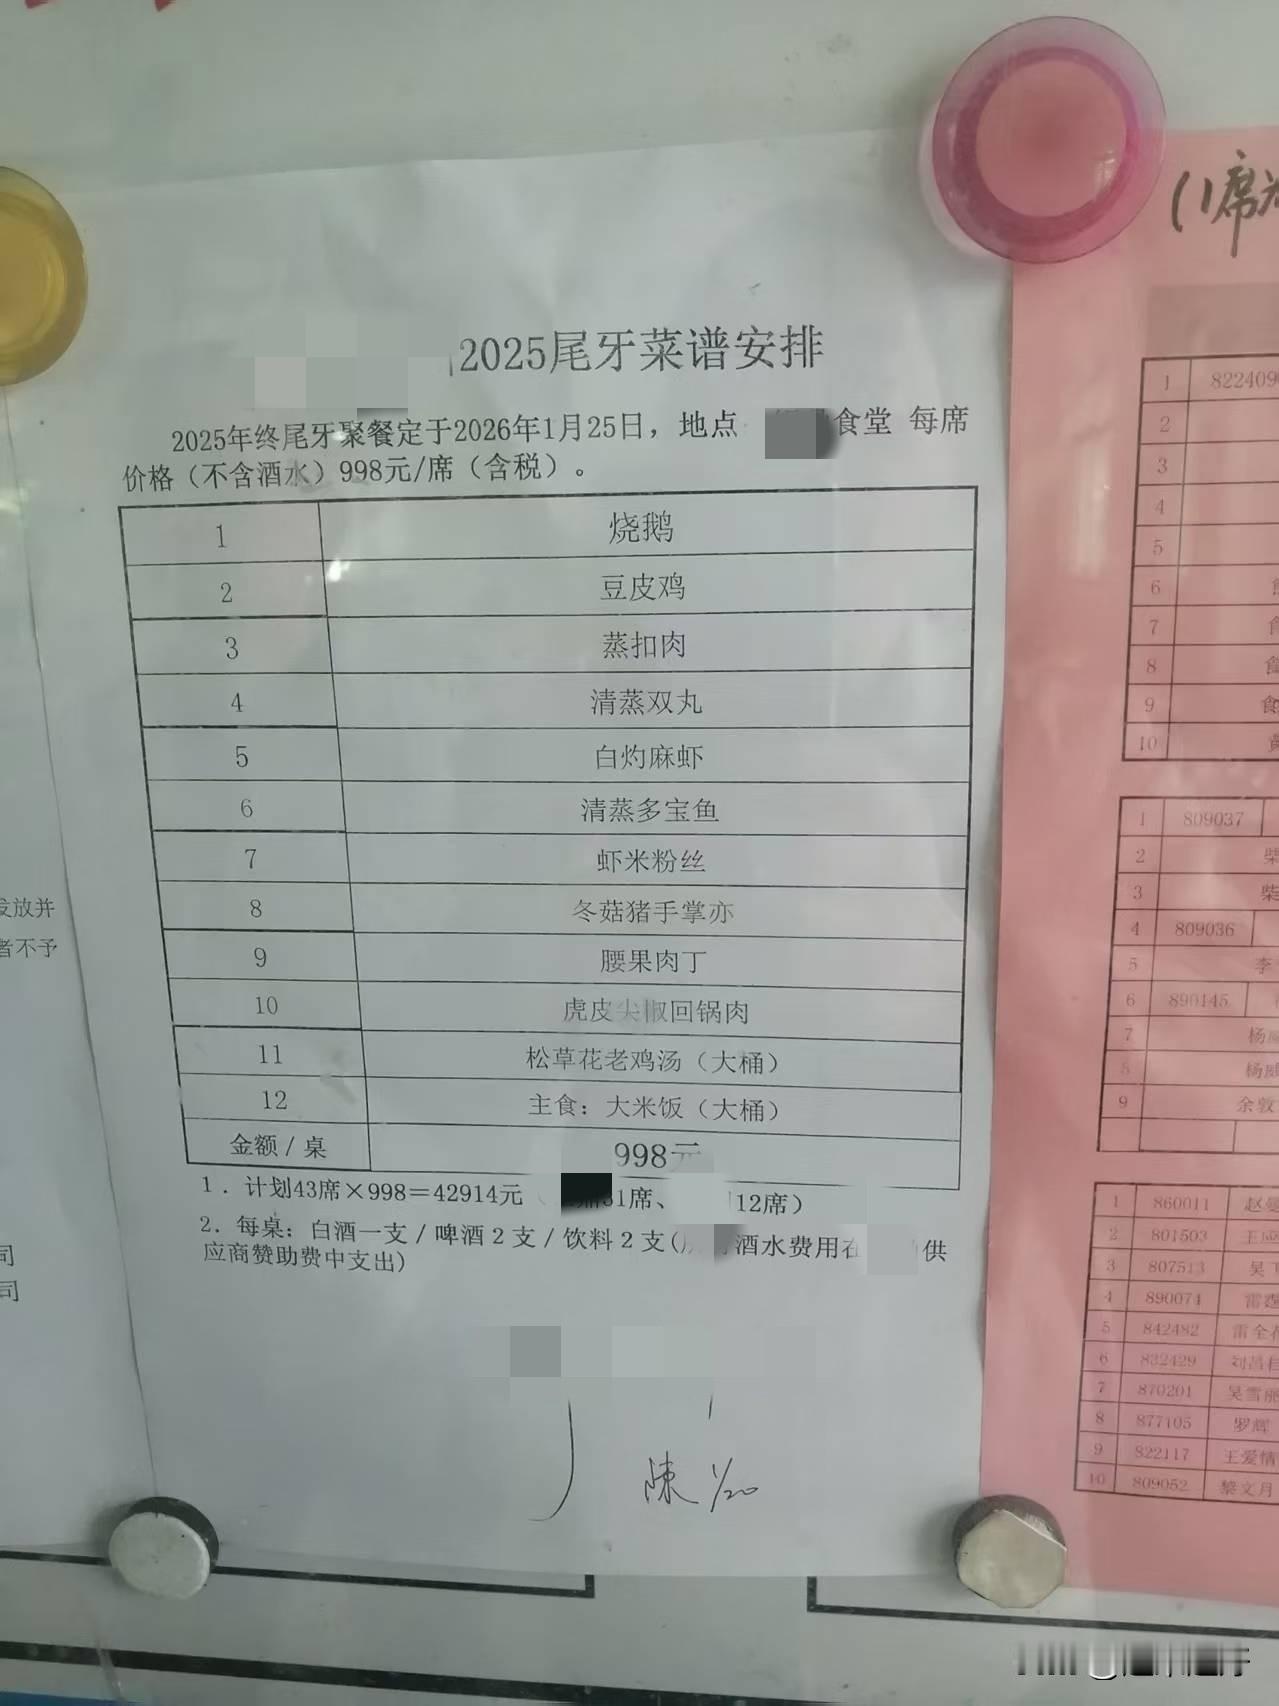 2025尾牙菜谱安排
2025年终尾牙聚餐定于2026年1月25日，地点 食堂 每席
价格（不含酒水）998元/席（含税）。
1 烧鹅
2 豆皮鸡
3 蒸扣肉
4 清蒸双丸
5 白灼麻虾
6 清蒸多宝鱼
7 虾米粉丝
8 冬菇猪手掌亦
9 腰果肉丁
10 虎皮尖椒回锅肉
11 松草花老鸡汤（大桶）
12 主食：大米饭（大桶）
金额/桌 998元
1．计划43席×998＝42914元（ 31席、 12席）
2．每桌：白酒一支/啤酒2支/饮料2支( 酒水费用在 供
应商赞助费中支出)
陳 1/20
发放并
者不予
司
司
(1席
1 822409
2
3
4
5
6
7
8
9
10
1 809037
2 柴
3 柴
4 809036
5 李
6 890145
7 杨
8 杨威
9 余敦
1 860011 赵
2 801503 王应
3 807513 吴
4 890074 雷霆
5 842482 雷全
6 832429 刘昌
7 870201 吴雪丽
8 877105 罗辉
9 822117 王爱情
10 809052 黎文月